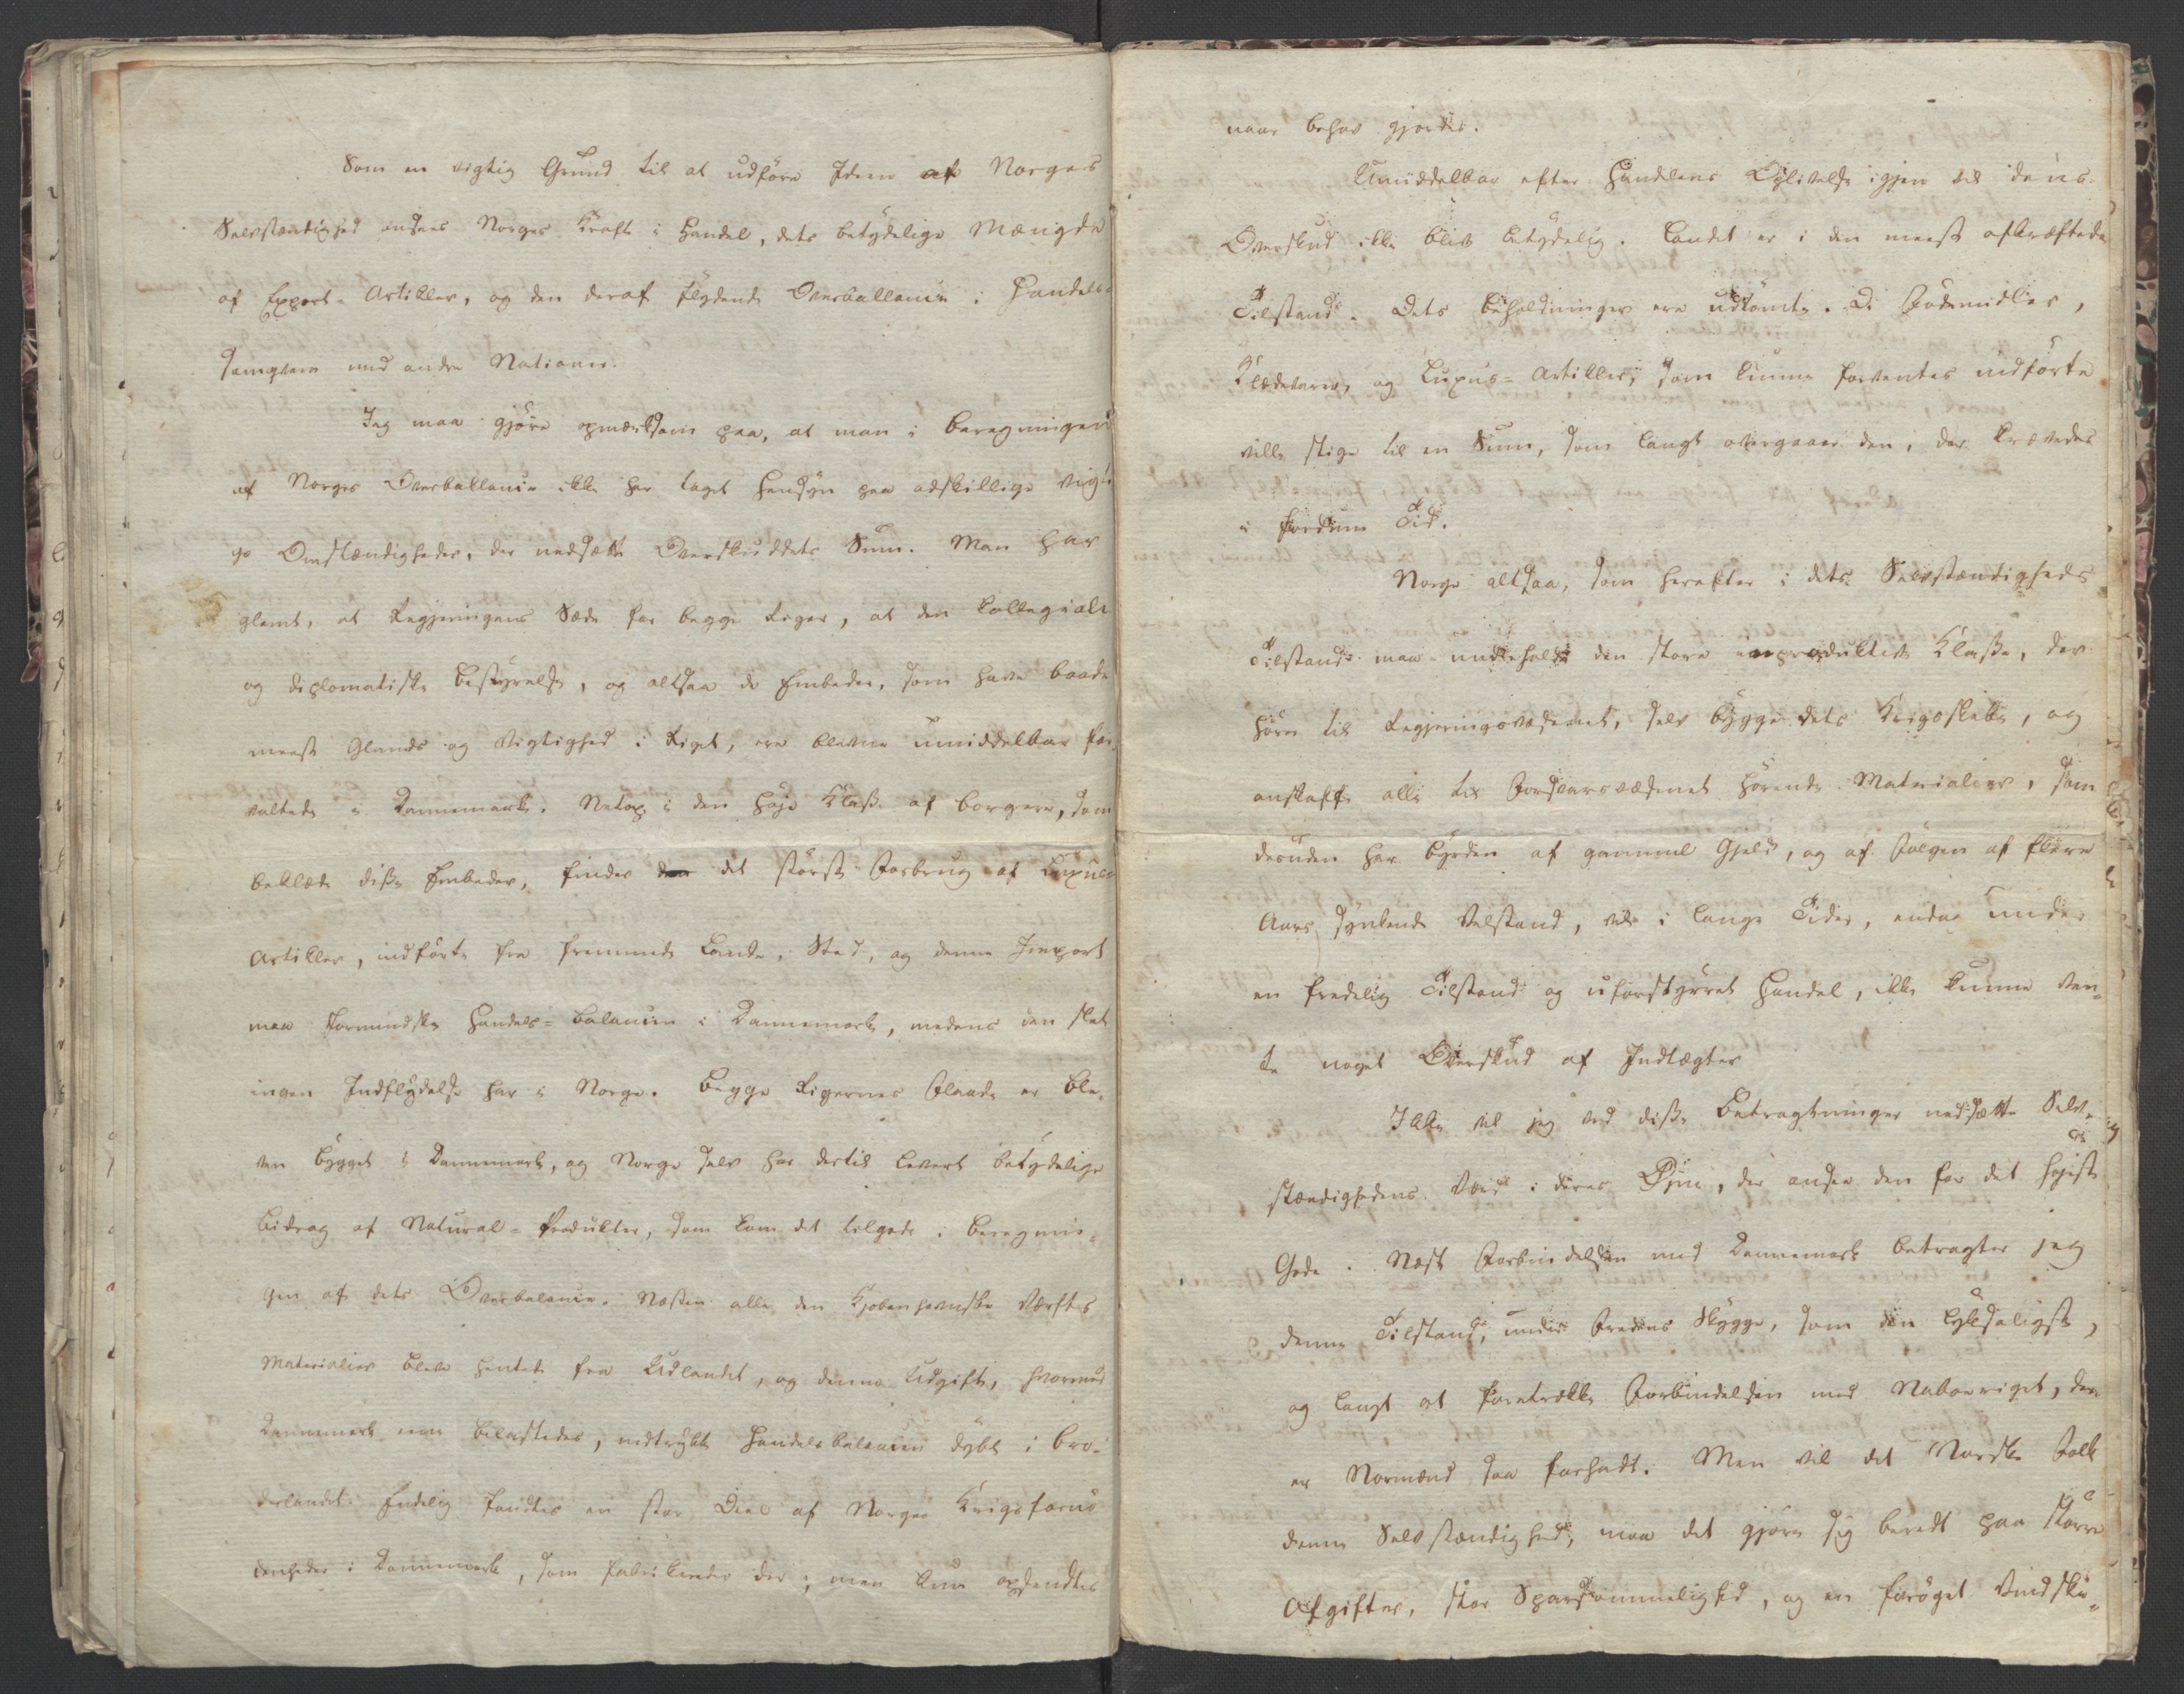 Som en vigtig Grund til at udføre Ideen af Norges
Selvstændighed ansees Norges Kraft i Handel, dets betydelige Mængde
af Export-Artikler, og den deraf flydende Overballance i Handels-
samqvem med andre Nationer.
Jeg maa gjøre opmærksom paa, at man i Beregningen
af Norges Overballance ikke har taget Hensyn paa adskillige vigti
ge Omstændigheder, der nedsætte Overskuddets Sum. Man har
glemt, at Regjeringens Sæde for begge Riger, at den Collegiale
og diplomatiske Bestyrelse, og altsaa de Embeder, som have baade
meest Glands og Vigtighed i Riget, ere blevne umiddelbar for-
valtede i Dannemark. Netop i den høje Klasse af Borgere, som
beklæde disse Embeder, finder det største Forbrug af Luxus-
Artikler, indførte fra fremmede Lande, Sted, og denne Import
maa formindske Handels-Balancen i Dannemark, medens den slet
ingen Indflydelse har i Norge. Begge Rigernes Flaade er ble-
ven bygget i Dannemark, og Norge selv har dertil levert betydelige
Bidrag af Natural-Produkter, som kom det tilgode i Beregnin-
gen af dets Overbalance. Næsten alle den Kjøbenhavnske Værfts
Materialier bleve hentede fra Udlandet, og denne Udgift, hvormed
Dannemark ene belastedes, nedtrykte Handelsbalancen dybt i Bro-
derlandet. Endelig fandtes en stor Deel af Norges Krigsfornø
denheder i Dannemark, som fabrikeredes der, men kun opsendtes
naar behov gjordes.
Umiddelbar efter Handlens Oplivelse igjen vil dens
Overskud ikke blive betydelig. Landet er i den meest afkræftede
Tilstand. Dets Beholdninger ere udtømte. De Fødemidler,
Klædevarer, og Luxus-Artikler, som kunne forventes indførte
ville stige til en Sum, som langt overgaaer den, der krævedes
i fordum Tid.
Norge altsaa, som herefter i dets Selvstændigheds
Tilstand maa underholde den store improduktive Klasse, der
hører til Regjeringsvæsenet, selv bygge dets Krigsskibe, og
anskaffe alle til Forsvarsvæsenet hørende Materialier, som
desuden har Byrden af gammel Gjeld, og af Følgen af flere
Aars synkende Velstand, vil i lange Tider, endog under
en fredelig Tilstand og uforstyrret Handel, ikke kunne ven-
te noget Overskud af Indtægter
Ikke vil jeg ved disse Betragtninger nedsætte Selv-
stændighedens Værd i deres Øjne, der ansee den for det højeste
Gode. Næst Forbindelsen med Dannemark betragter jeg
denne Tilstand, under Fredens Skygge, som den lyksaligste,
og langt at foretrække Forbindelsen med Naboeriget, der
er Normænd saa forhadt. Men vil det Norske Folk
denne Selvstændighed, maa det gjøre sig beredt paa større
Afgifter, stor Sparsommelighed, og en forøget Vindski-